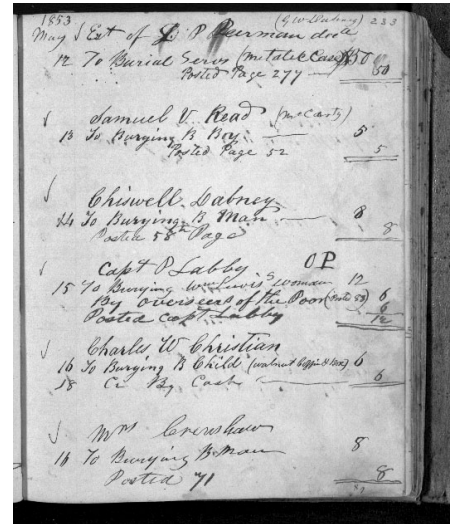 1853 (G W Dabney) 233
May √ Ext of P Peerman decd
12 To Burial Servs (metalic Case) $50
Posted Page 277 50
√ Samuel V. Read (McCarty)
13 To Burying B Boy 5
Posted Page 52 5
√ Chiswell Dabney
14 To Burying B Man 8
Posted 58th Page 8
√ Capt P Labby O P
15 To Burying Wm Lewis's woman 12
By overseers of the Poor (Posted 53) 6
Posted Capt Labby 6
12
√ Charles W Christian
16 To Burying B Child (walnut Coffin & Box) 6
18 Cr By Cash 6
√ Mrs Crenshaw
16 To Burying B Man 8
Posted 71 8